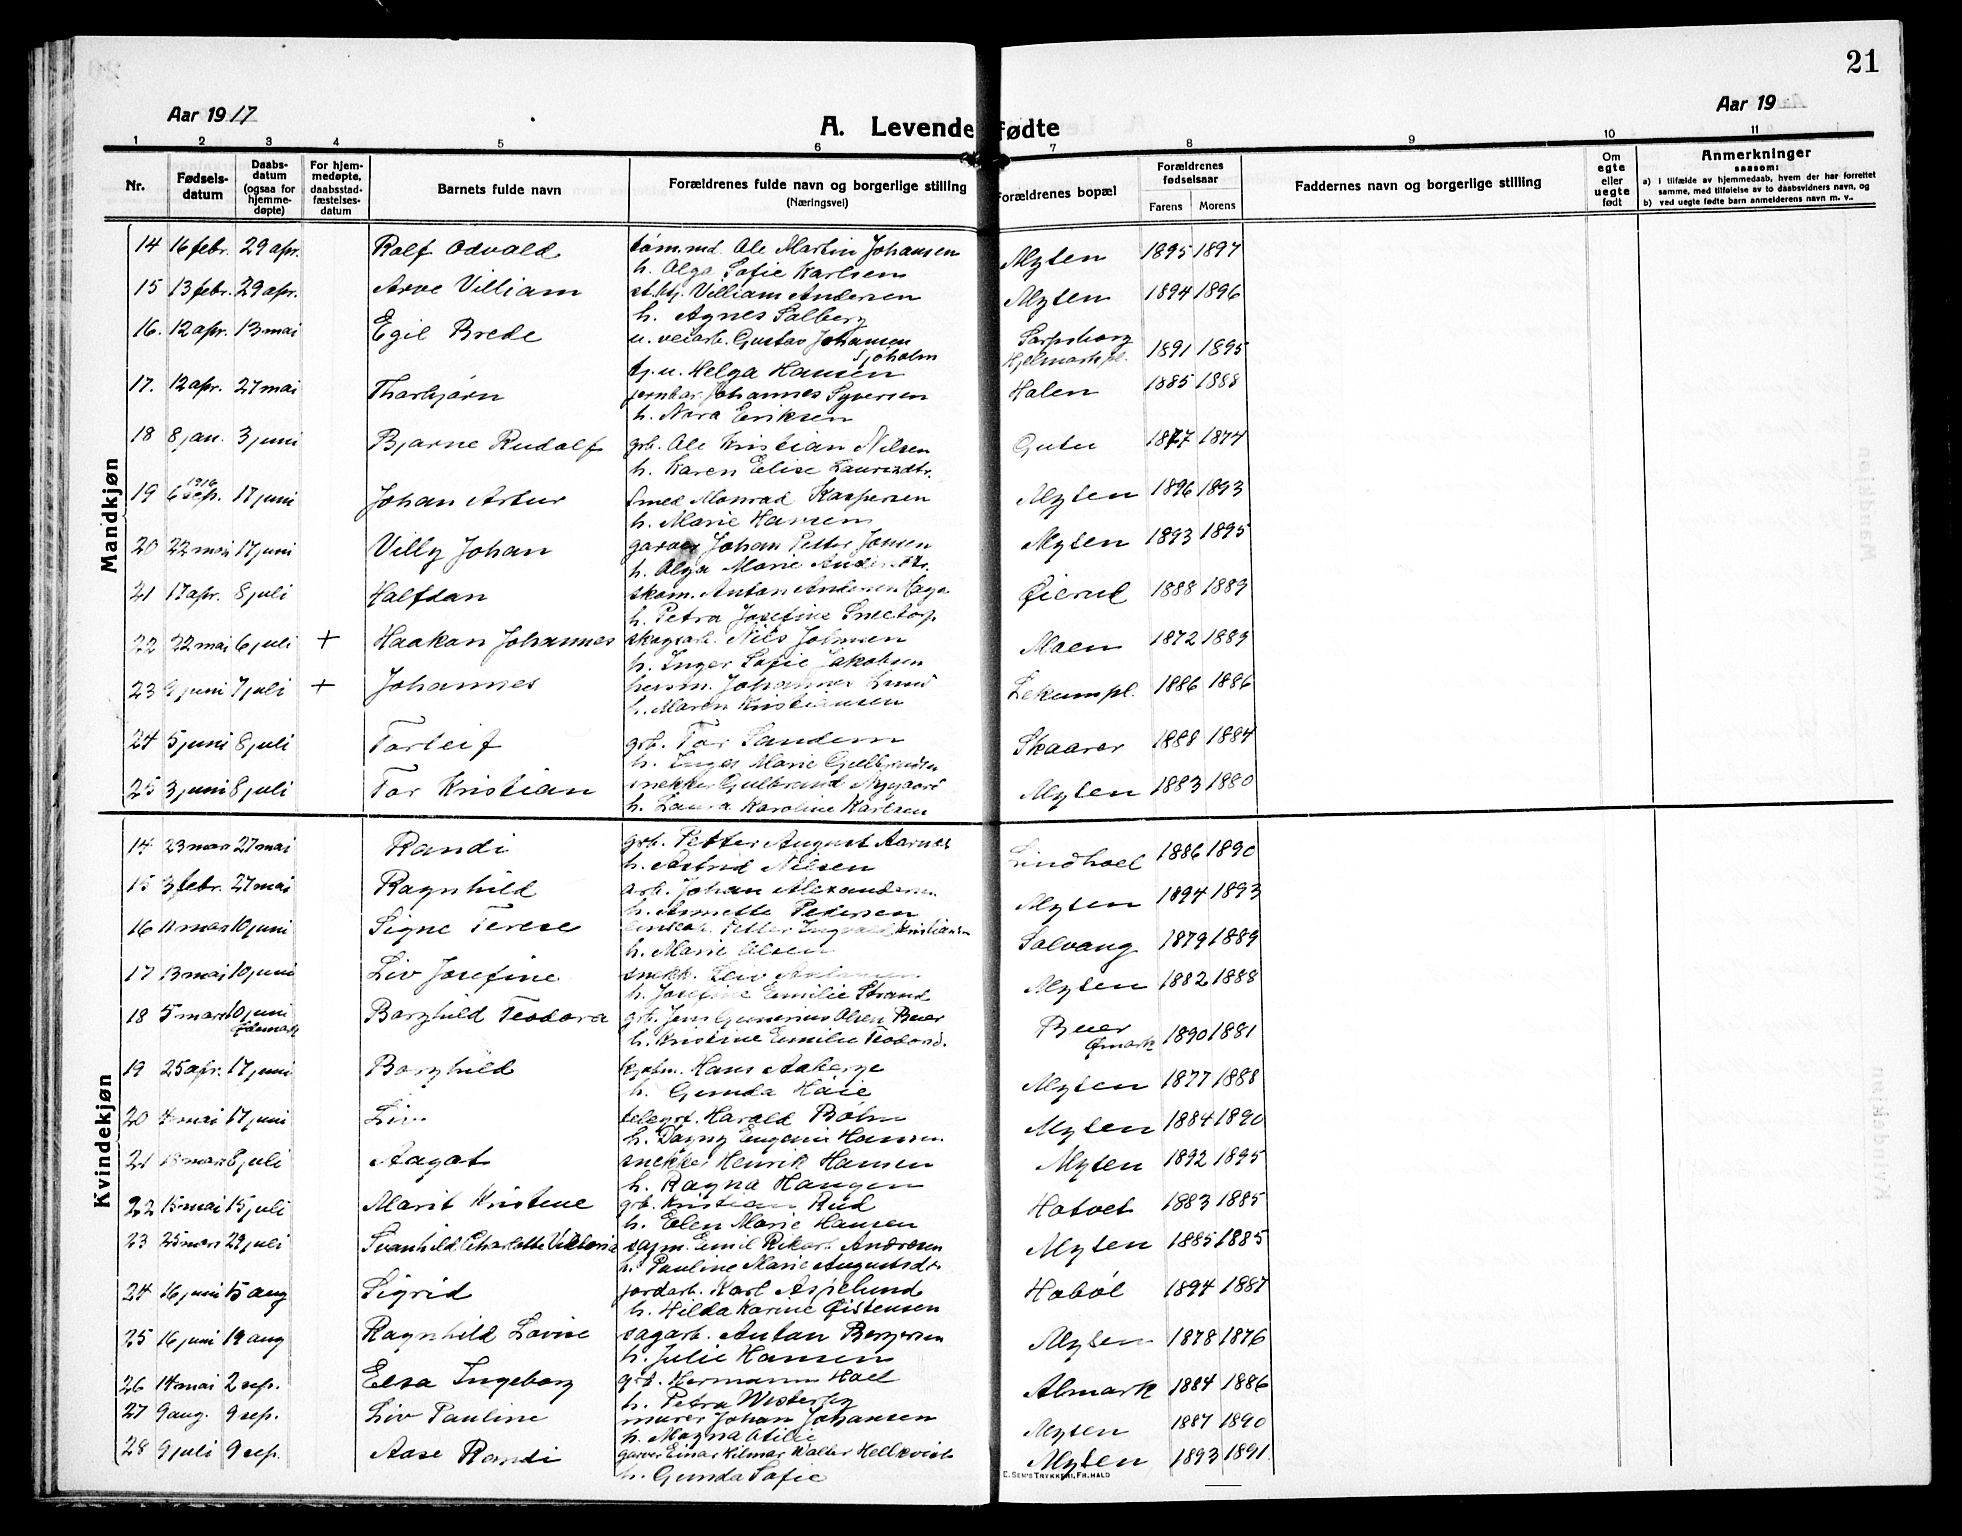 21
Aar 1917
Aar 19
A. Levende fødte
1 2 3 4 5 6 7 8 9 10 11
Nr.
Fødsels-
datum
Daabs-
datum
(ogsaa for
hjemme-
døpte)
For hjem-
medøpte,
daabsstad-
fæstelses-
datum
Barnets fulde navn
Forældrenes fulde navn og borgerlige stilling
(Næringsvei)
Forældrenes bopæl
Forældrenes
fødselsaar
Farens Morens
Faddernes navn og borgerlige stilling
Om
egte
eller
uegte
født
Anmerkninger
saasom:
a) i tilfælde av hjemmedaab, hvem der har forrettet
samme, med tilføielse av to daabsvidners navn, og
b) ved uegte fødte barn anmelderens navn m. v.
Mandkjøn
14 16 febr. 29 apr. Rolf Odvald tømm.md. Ole Martin Johansen Mysen 1895 1897
h. Olga Sofie Karlsen
15 13 febr. 29 apr. Arve Villiam st.btj. Villiam Andersen Mysen 1894 1896
h. Agnes Solberg
16. 12 apr. 13 mai Egil Brede u. veiarb. Gustav Johansen Sarpsborg
Sjøholm Hjelmark pl. 1891 1895
tj. u. Helga Hansen
17. 12 apr. 27 mai Thorbjørn jernbar. Johannes Syversen Holen 1885 1888
h. Nora Eriksen
18 8 jan. 3 juni Bjarne Rudolf grb. Ole Kristian Nilsen Gutu 1877 1874
h. Karen Elise Lauritzdtr.
1916
19 6 sep. 17 juni Johan Artur smed Monrad Kaspersen Mysen 1896 1893
h. Marie Hansen
20 22 mai 17 juni Villy Johan garver Johan Petter Jonsen Mysen 1893 1895
h. Olga Marie Andersdtr.
21 17 apr. 8 juli Halfdan skom. Anton Andersen Haga Øierud 1888 1889
h. Petra Josefine Smetorp
22 22 mai 6 juli + Haakon Johannes skogsarb. Nils Johnsen Moen 1872 1889
h. Inger Sofie Jakobsen
23 9 juni 7 juli + Johannes hersm. Johannes Lund Lekum pl. 1886 1886
h. Maren Kristiansen
24 5 juni 8 juli Torleif grb. Tor Sandem Skaarer 1888 1884
h. Inger Marie Gulbrandsen
25 3 juni 8 juli Tor Kristian snekker Gulbrand Nygaard Mysen 1883 1880
h. Laura Karoline Karlsen
Kvindekjøn
14 23 mars 27 mai Randi grb. Petter August Aarnes Lindhoel 1886 1890
h. Astrid Nilsen
15 3 febr. 27 mai Ragnhild arb. Johan Alexandersen Mysen 1894 1893
h. Annette Pedersen
16 11 mars 10 juni Signe Terese Petter Ingvald Kristiansen Solvang 1879 1889
h. Marie Olsen
17 13 mai 10 juni Liv Josefine snekk. Leiv Mysen 1882 1888
h. Josefine Emilie Strand
18 5 mars 10 juni Borghild Teodora grb. Jens Gunerius Olsen Buer Buer
Ødemark Ømark 1890 1881
h. Kristine Emilie Teodorsd.
19 25 apr. 17 juni Borghild kjøbm. Hans Aaberge Mysen 1877 1888
h. Gunda Høie
20 4 mai 17 juni Liv telegrf. Harald Bøhn Mysen 1884 1890
h. Dagny Eugenie Hansen
21 18 mars 8 juli Aagot snekker Henrik Hansen Mysen 1892 1895
h. Ragna Haugen
22 15 mai 15 juli Marit Kristine grb. Kristian Rud Hotvet 1883 1885
h. Elen Marie Hansen
23 25 mars 29 juli Svanhild Charlotte Viktoria sagm. Emil Rikard Andresen Mysen 1885 1885
h. Pauline Marie Augustsdtr
24 16 juni 15 aug Sigrid jordarb. Karl Aspelund Hobøl 1894 1887
h. Hilda Karine Øistensen
25 16 juni 19 aug Ragnhild Lovise sagarb. Anton Bergersen Mysen 1878 1876
h. Julie Hansen
26 14 mai 2 sep. Elsa Ingeborg grb. Hermann Hoel Almark 1884 1886
h. Petra Westerby
27 9 aug. 9 sep. Liv Pauline murer Johan Johansen Mysen 1887 1890
h. Magna Otilie
28 9 juli 9 sep. Aase Randi garver Einar Hilmar Walter Hellkvist Mysen 1893 1891
h. Gunda Sofie
E. Sem's Trykkeri, Fr.hald